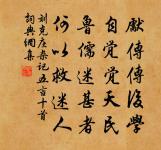 獻傳傳後學
自覺覺天民
魯儒迷甚者
何以救迷人
劉克庄杂記五言十首
詞典網集